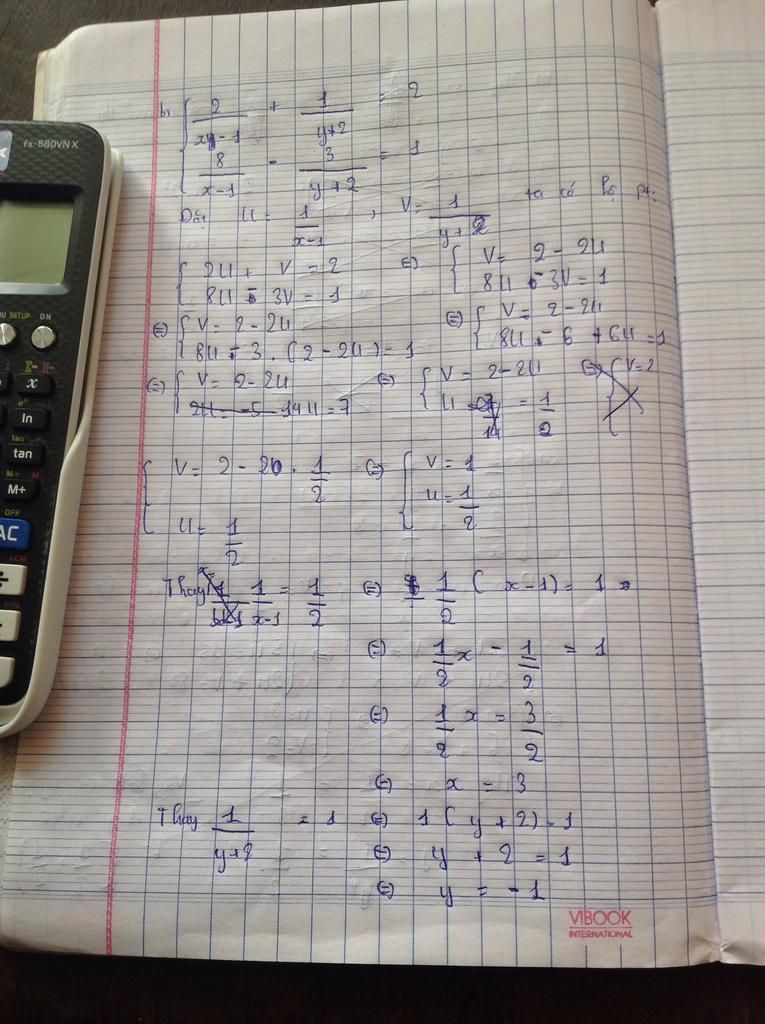 fx-580VN X
SETUP ON
x
ln
tan⁻¹
tan
M-
M+
OFF
AC
b) { 2/(x-1) + 1/(y+2) = 2
8/(x-1) - 3/(y+2) = 1
Đặt U = 1/(x-1) , V = 1/(y+2) ta có hệ pt:
{ 2U + V = 2 (=) { V = 2 - 2U
8U - 3V = 1 8U - 3V = 1
(=) { V = 2 - 2U (=) { V = 2 - 2U
8U - 3 . (2 - 2U) = 1 8U - 6 + 6U = 1
(=) { V = 2 - 2U (=) { V = 2 - 2U (=) { V = 2
14U = 7 U = 1/2
{ V = 2 - 2 . 1/2 (=) { V = 1
U = 1/2 U = 1/2
Thay 1/(x-1) = 1/2 (=) 1/2 (x-1) = 1
(=) 1/2 x - 1/2 = 1
(=) 1/2 x = 3/2
(=) x = 3
Thay 1/(y+2) = 1 (=) 1 (y + 2) = 1
(=) y + 2 = 1
(=) y = -1
VIBOOK
INTERNATIONAL